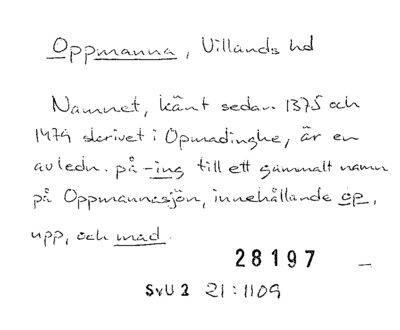 Oppmanna, Villands hd
Namnet, känt sedan 1375 och
1479 skrivet i Opmadinghe, är en
avledn. på -ing till ett gammalt namn
på Oppmannasjön, innehållande op,
upp, och mad.
28197 —
SvU 2 21:1109